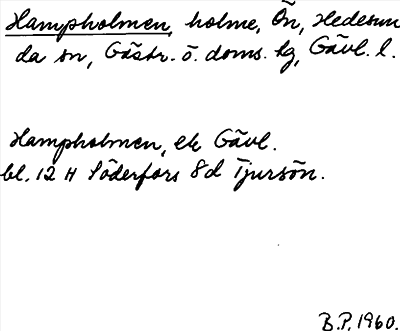 Hampholmen, holme, Ön, Hedesun
da sn, Gästr. ö. doms. hg, Gävl. l.
Hampholmen, ek Gävl.
bl. 12 H Söderfors 8d Tjursön.
B.P. 1960.